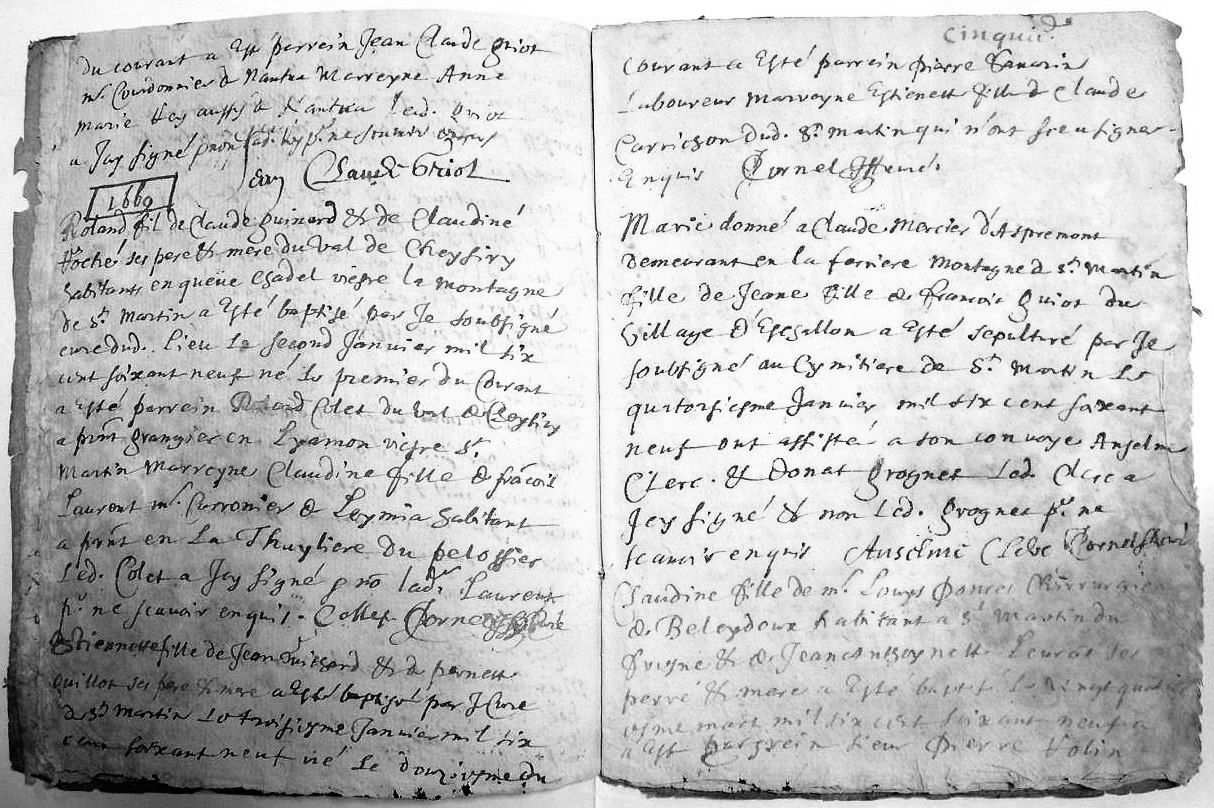 du courant a Esté parrein Jean Claude Griot
mr. Courdonnier de Nantua Marreyne Anne
Marie Rey aussy de Nantua Led. Griot
a Jcy signé non lad. Rey pr. ne scavoir enquis
Claude Griot
1669
Roland fil de Claude Guinard & de Claudine
ses pere & mere du Val de Cheysiry
habitants en la montagne
de St. Martin a Esté baptisé par Je soubsigné
curé dud. Lieu Le second Janvier mil six
cent soixant neuf né Le premier du Courant
a Esté parrein Roland Colet du Val de Cheysiry
a prnt grangier en Lyamon St.
Martin Marreyne Claudine fille de francois
Laurent mr. de Leymia habitant
a prnt en La Thuyliere du pelossier
Led. Colet a Jcy signé & non lad. Laurent
pr. ne scavoir enquis. Collet
Estiennette fille de Jean Guichard & de pernette
Guillot ses pere & mere a Esté baptisé par Je Curé
de St Martin Le troisiesme Janvier mil six
cent soixant neuf né Le douziesme du
Courant a Esté parrein Pierre
Laboureur Marrayne Estienette fille de Claude
Carrichon dud. St. Martin qui n'ont sceu signer
Enquis Cornel
Marie donné a Claude Mercier d'Aspremont
demeurant en la ferriere Montagne de St. Martin
fille de Jeane fille de francois Guiot du
Village d'Eschallon a Esté sepulturé par Je
soubsigné au Cymitiere de St. Martin Le
quatorsiesme Janvier mil six cent soixant
neuf ont assisté a son convoye Anselme
Clerc. & Donat Grognet Led. Clerc a
Jcy signé & non Led. Grognet pr. ne
scavoir enquis Anselme Clerc Cornel
Claudine fille de mr. Louys Ponces Chirurgien
de Beleydoux habitant a St Martin du
Fresne & de Jeane Anthoynette ses
perre & mere a Esté baptisé Le Vingt quatri
esme mart mil six cent soixant neuf a
a Esté Parrein sieur Pierre